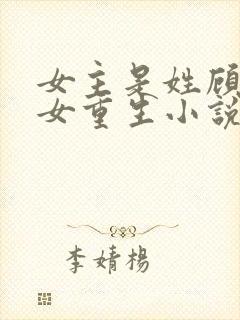 女主是姓顾
女重生小說
李婧楊